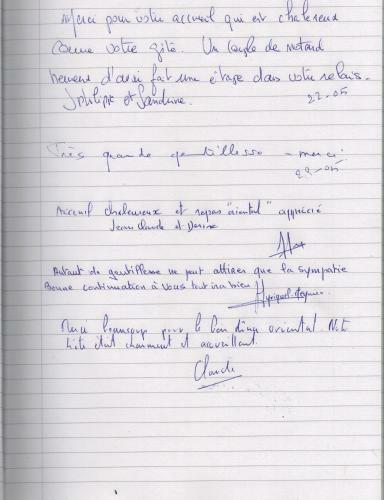 Merci pour votre accueil qui est chaleureux
comme votre gîte. Un couple de motard
heureux d'avoir fait une étape dans votre relais.
Philippe et Sandrine.
22-05
Très grande gentillesse - merci.
22-05
Accueil chaleureux et repas "oriental" apprécié
Jean Claude et Denise
Autant de gentillesse ne peut attirer que la sympatie
Bonne continuation à vous tout ira bien
Merci beaucoup pour le bon diner oriental. Votre
Gîte était charmant et accueillant.
Claude